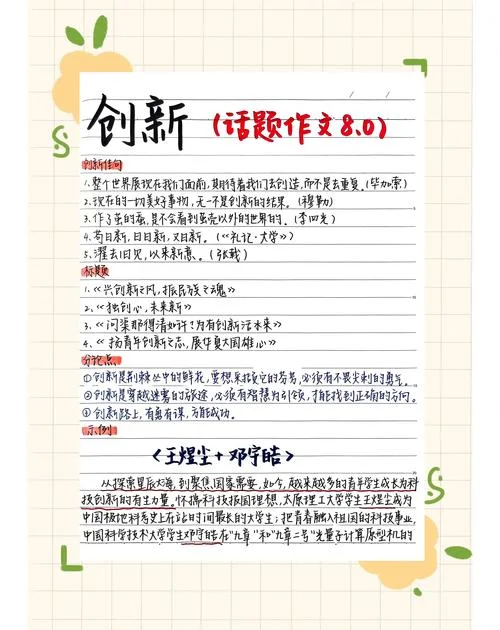 创新 (话题作文8.0)
创新佳句
1、整个世界展现在我们面前,期待着我们去创造,而不是去重复。(毕加索)
2、现在的一切美好事物,无一不是创新的结果。(穆勒)
3、作了茧的蚕,是不会看到茧壳以外的世界的。(李四光)
4、苟日新,日日新,又日新。(《礼记·大学》)
5、濯去旧见,以来新意。(张载)
标题
1、《兴创新之风,振民族之魂》
2、《独创心,未来新》
3、《问渠那得清如许?为有创新活水来》
4、《扬青年创新之志,展华夏大国雄心》
分论点
①创新是荆棘丛中的鲜花,要想采撷它的芬芳,必须有不畏尖刺的勇气。
②创新是穿越迷雾的旅途,必须有智慧为引领,才能找到正确的方向。
③创新路上,有勇有谋,方能成功。
示例
《王煜尘+邓宇皓》
从探索星辰大海,到聚焦国家需要,如今,越来越多的青年学生成长为科
技创新的有生力量。怀揣科技报国理想,太原理工大学学生王煜尘成为
中国极地科考史上在站时间最长的大学生;把青春融入祖国的科技事业,
中国科学技术大学学生邓宇皓在"九章"和"九章二号"光量子计算原型机的